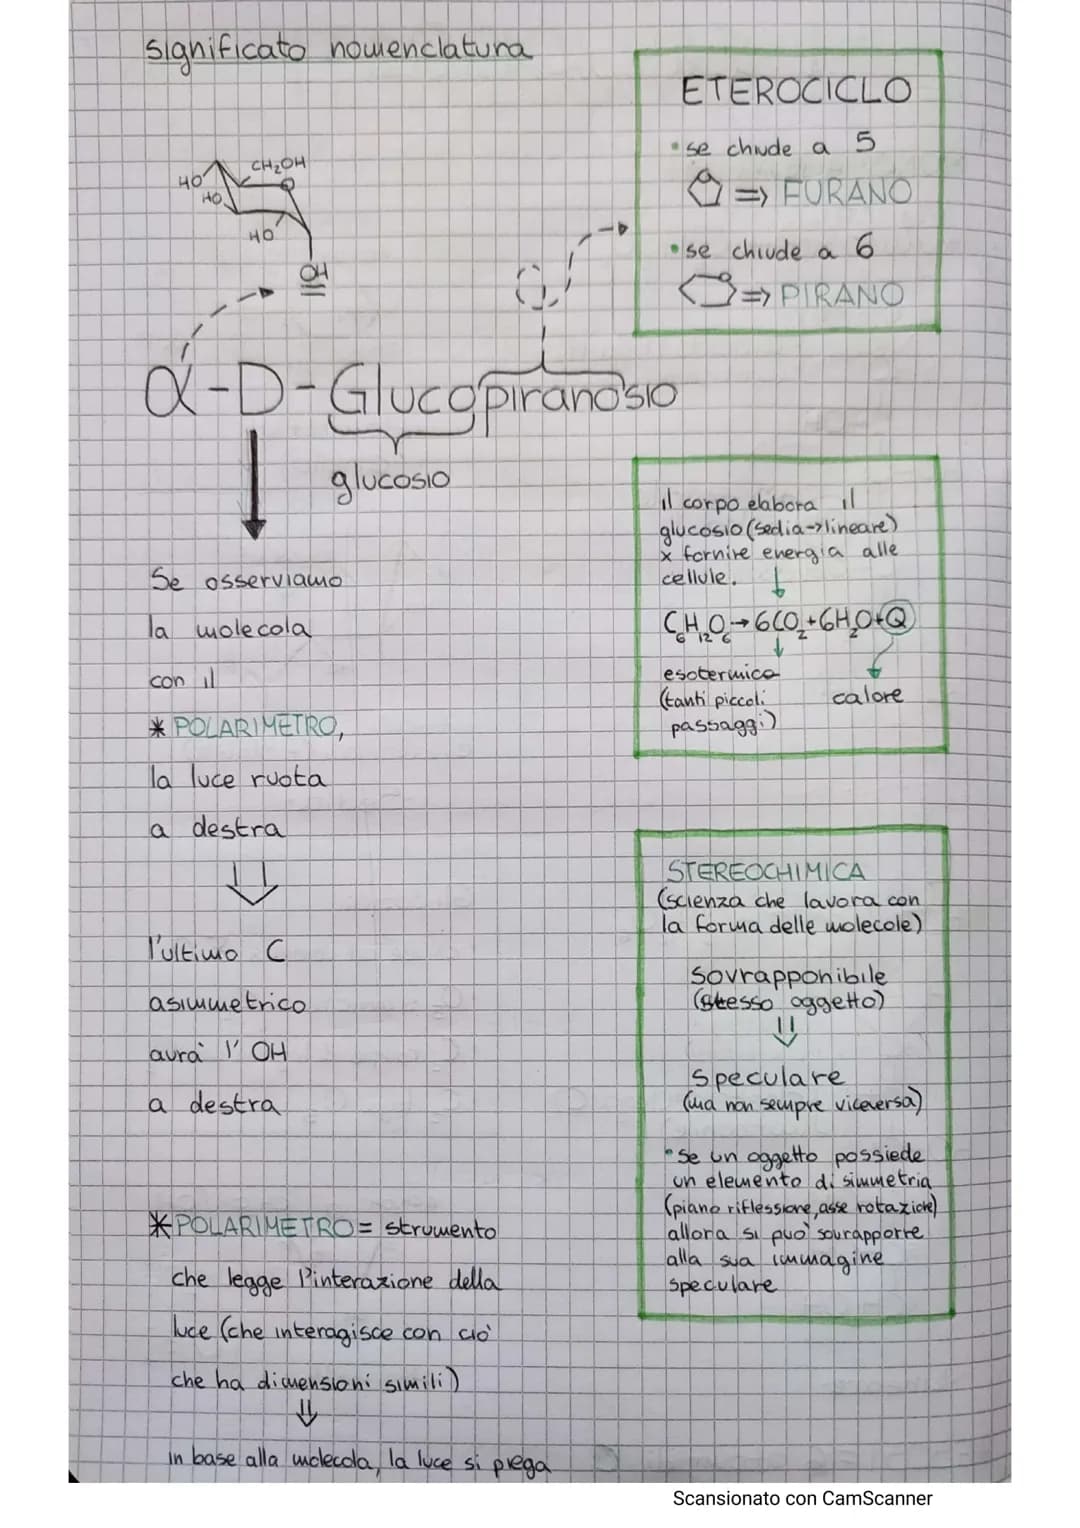 significato nomenclatura
CH₂OH
HO
HO
HO
OH
α-D-Glucopiranosio
glucosio
Se osserviamo
la molecola
con il
* POLARIMETRO,
la luce ruota
a destra
⇓
l'ultimo C
asimmetrico
avrà l'OH
a destra
* POLARIMETRO = strumento
che legge l'interazione della
luce (che interagisce con ciò
che ha dimensioni simili)
⇓
in base alla molecola, la luce si piega
ETEROCICLO
• se chiude a 5
⇒ FURANO
• se chiude a 6
⇒ PIRANO
il corpo elabora il
glucosio (sedia→lineare)
x fornire energia alle
cellule. ↓
C₆H₁₂O₆ → 6CO₂ + 6H₂O + Q
esotermica
(tanti piccoli
passaggi)
calore
STEREOCHIMICA
(scienza che lavora con
la forma delle molecole)
Sovrapponibile
(stesso oggetto)
⇓
Speculare
(ma non sempre viceversa)
• Se un oggetto possiede
un elemento di simmetria
(piano riflessione, asse rotazione)
allora si può sovrapporre
alla sua immagine
speculare
Scansionato con CamScanner